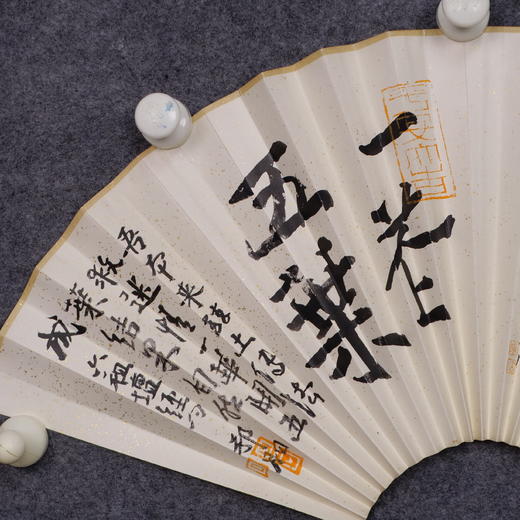 一花
五葉
吾本来兹土传法
救迷情一華開五
葉結果自然
成
六祖壇經句